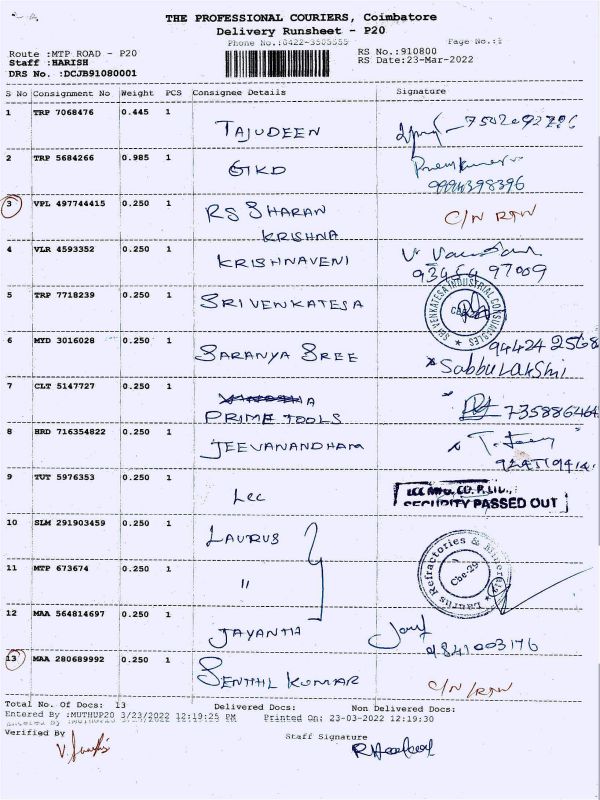 THE PROFESSIONAL COURIERS, Coimbatore
Delivery Runsheet - P20
Phone No.:0422-3505555 Page No.:1
Route :MTP ROAD - P20 RS No.:910800
Staff :HARISH RS Date:23-Mar-2022
DRS No. :DCJB91080001
S No Consignment No Weight PCS Consignee Details Signature
1 TRP 7068476 0.445 1 TAJUDEEN
2 TRP 5684266 0.985 1 GKD
9994398396
3 VPL 497744415 0.250 1 RS SHARAN KRISHNA C/N RTN
4 VLR 4593352 0.250 1 KRISHNAVENI
97009
5 TRP 7718239 0.250 1 SRI VENKATESA SRI VENKATESA INDUSTRIAL CONSUMABLES
6 MYD 3016028 0.250 1 SARANYA SREE 944242568
Sabbulakshmi
7 CLT 5147727 0.250 1 PRIME TOOLS 735886464
8 HRD 716354822 0.250 1 JEEVANANDHAM
9 TUT 5976353 0.250 1 Lcc LCC MFG. CO. P. LTD.,
SECURITY PASSED OUT
10 SLM 291903459 0.250 1 LAURUS
11 MTP 673674 0.250 1 " Laurus Refractories & Minerals Cbe-29
12 MAA 564814697 0.250 1 JAYANTHI
9841003176
13 MAA 280689992 0.250 1 SENTHIL KUMAR C/N/RTN
Total No. Of Docs: 13 Delivered Docs: Non Delivered Docs:
Entered By :MUTHUP20 3/23/2022 12:19:25 PM Printed On: 23-03-2022 12:19:30
Verified By Staff Signature